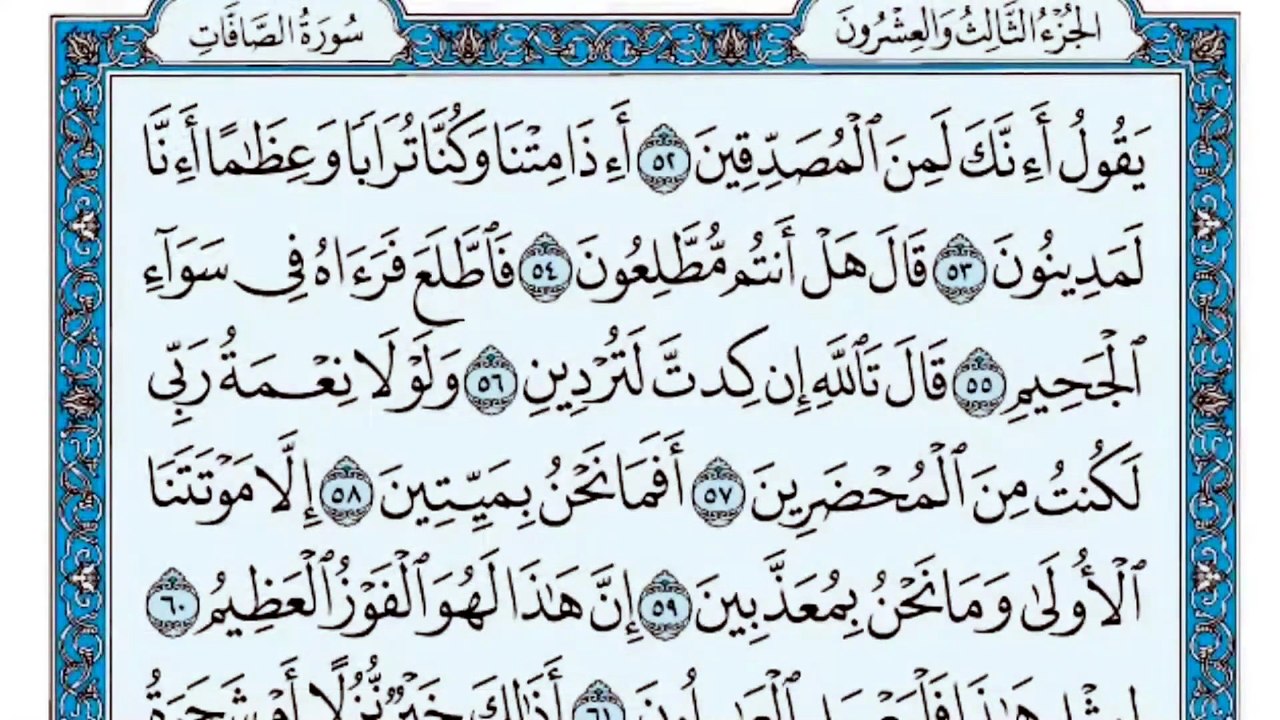 الجُزْءُ الثَّالِثُ وَالعِشْرُونَ
سُورَةُ الصَّافَّاتِ
يَقُولُ أَءِنَّكَ لَمِنَ ٱلْمُصَدِّقِينَ ٥٢ أَءِذَا مِتْنَا وَكُنَّا تُرَابًا وَعِظَٰمًا أَءِنَّا
لَمَدِينُونَ ٥٣ قَالَ هَلْ أَنتُم مُّطَّلِعُونَ ٥٤ فَٱطَّلَعَ فَرَءَاهُ فِى سَوَآءِ
ٱلْجَحِيمِ ٥٥ قَالَ تَٱللَّهِ إِن كِدتَّ لَتُرْدِينِ ٥٦ وَلَوْلَا نِعْمَةُ رَبِّى
لَكُنتُ مِنَ ٱلْمُحْضَرِينَ ٥٧ أَفَمَا نَحْنُ بِمَيِّتِينَ ٥٨ إِلَّا مَوْتَتَنَا
ٱلْأُولَىٰ وَمَا نَحْنُ بِمُعَذَّبِينَ ٥٩ إِنَّ هَٰذَا لَهُوَ ٱلْفَوْزُ ٱلْعَظِيمُ ٦٠
لِمِثْلِ هَٰذَا فَلْيَعْمَلِ ٱلْعَٰمِلُونَ ٦١ أَذَٰلِكَ خَيْرٌ نُّزُلًا أَمْ شَجَرَةُ